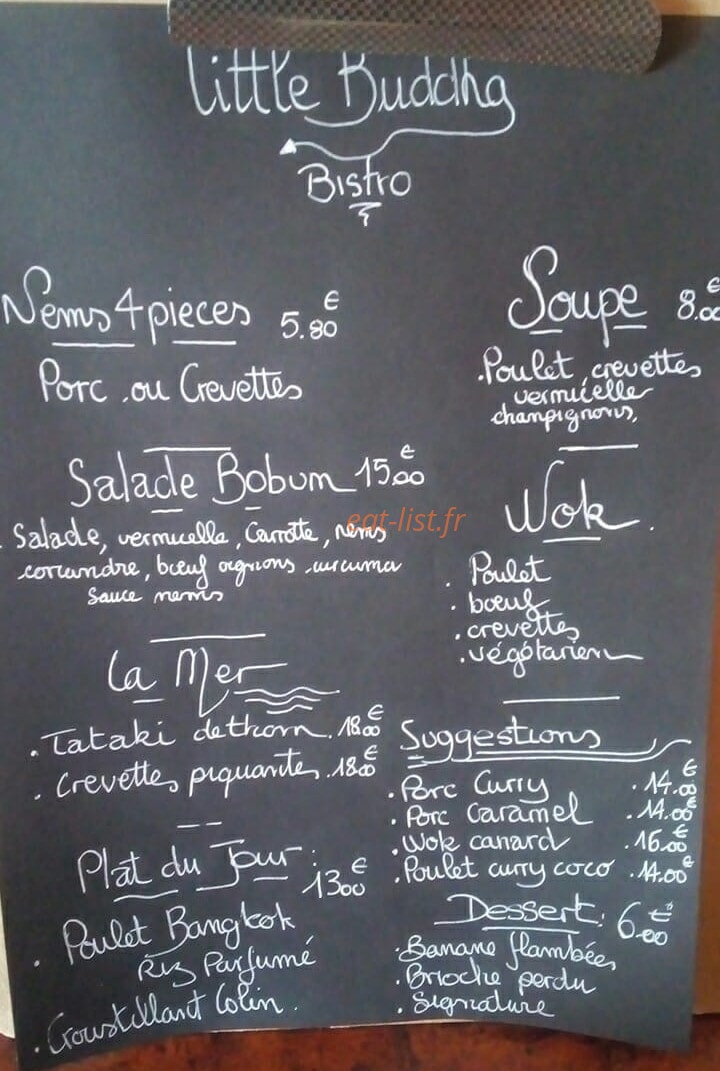 Little Buddha
Bistro
Nems 4 pieces 5.80 €
Porc ou Crevettes
Salade Bobun 15.00 €
Salade, vermicelle, Carotte, nems
coriandre, bœuf oignons, curcuma
Sauce nems
La Mer
. Tataki de thon . 18.00 €
. Crevettes piquantes . 18.00 €
Plat du Jour : 13.00 €
. Poulet Bangkok
Riz Parfumé
. Croustillant Colin .
Soupe 8.00 €
. Poulet, crevettes
vermicelle
champignons,
Wok .
. Poulet
. bœuf
. crevettes
. végétarien
Suggestions
. Porc Curry . 14.00 €
. Porc Caramel . 14.00 €
. Wok canard . 16.00 €
. Poulet curry coco . 14.00 €
Dessert : 6.00 €
. Banane flambées
. Brioche perdu
. Signature
eat-list.fr